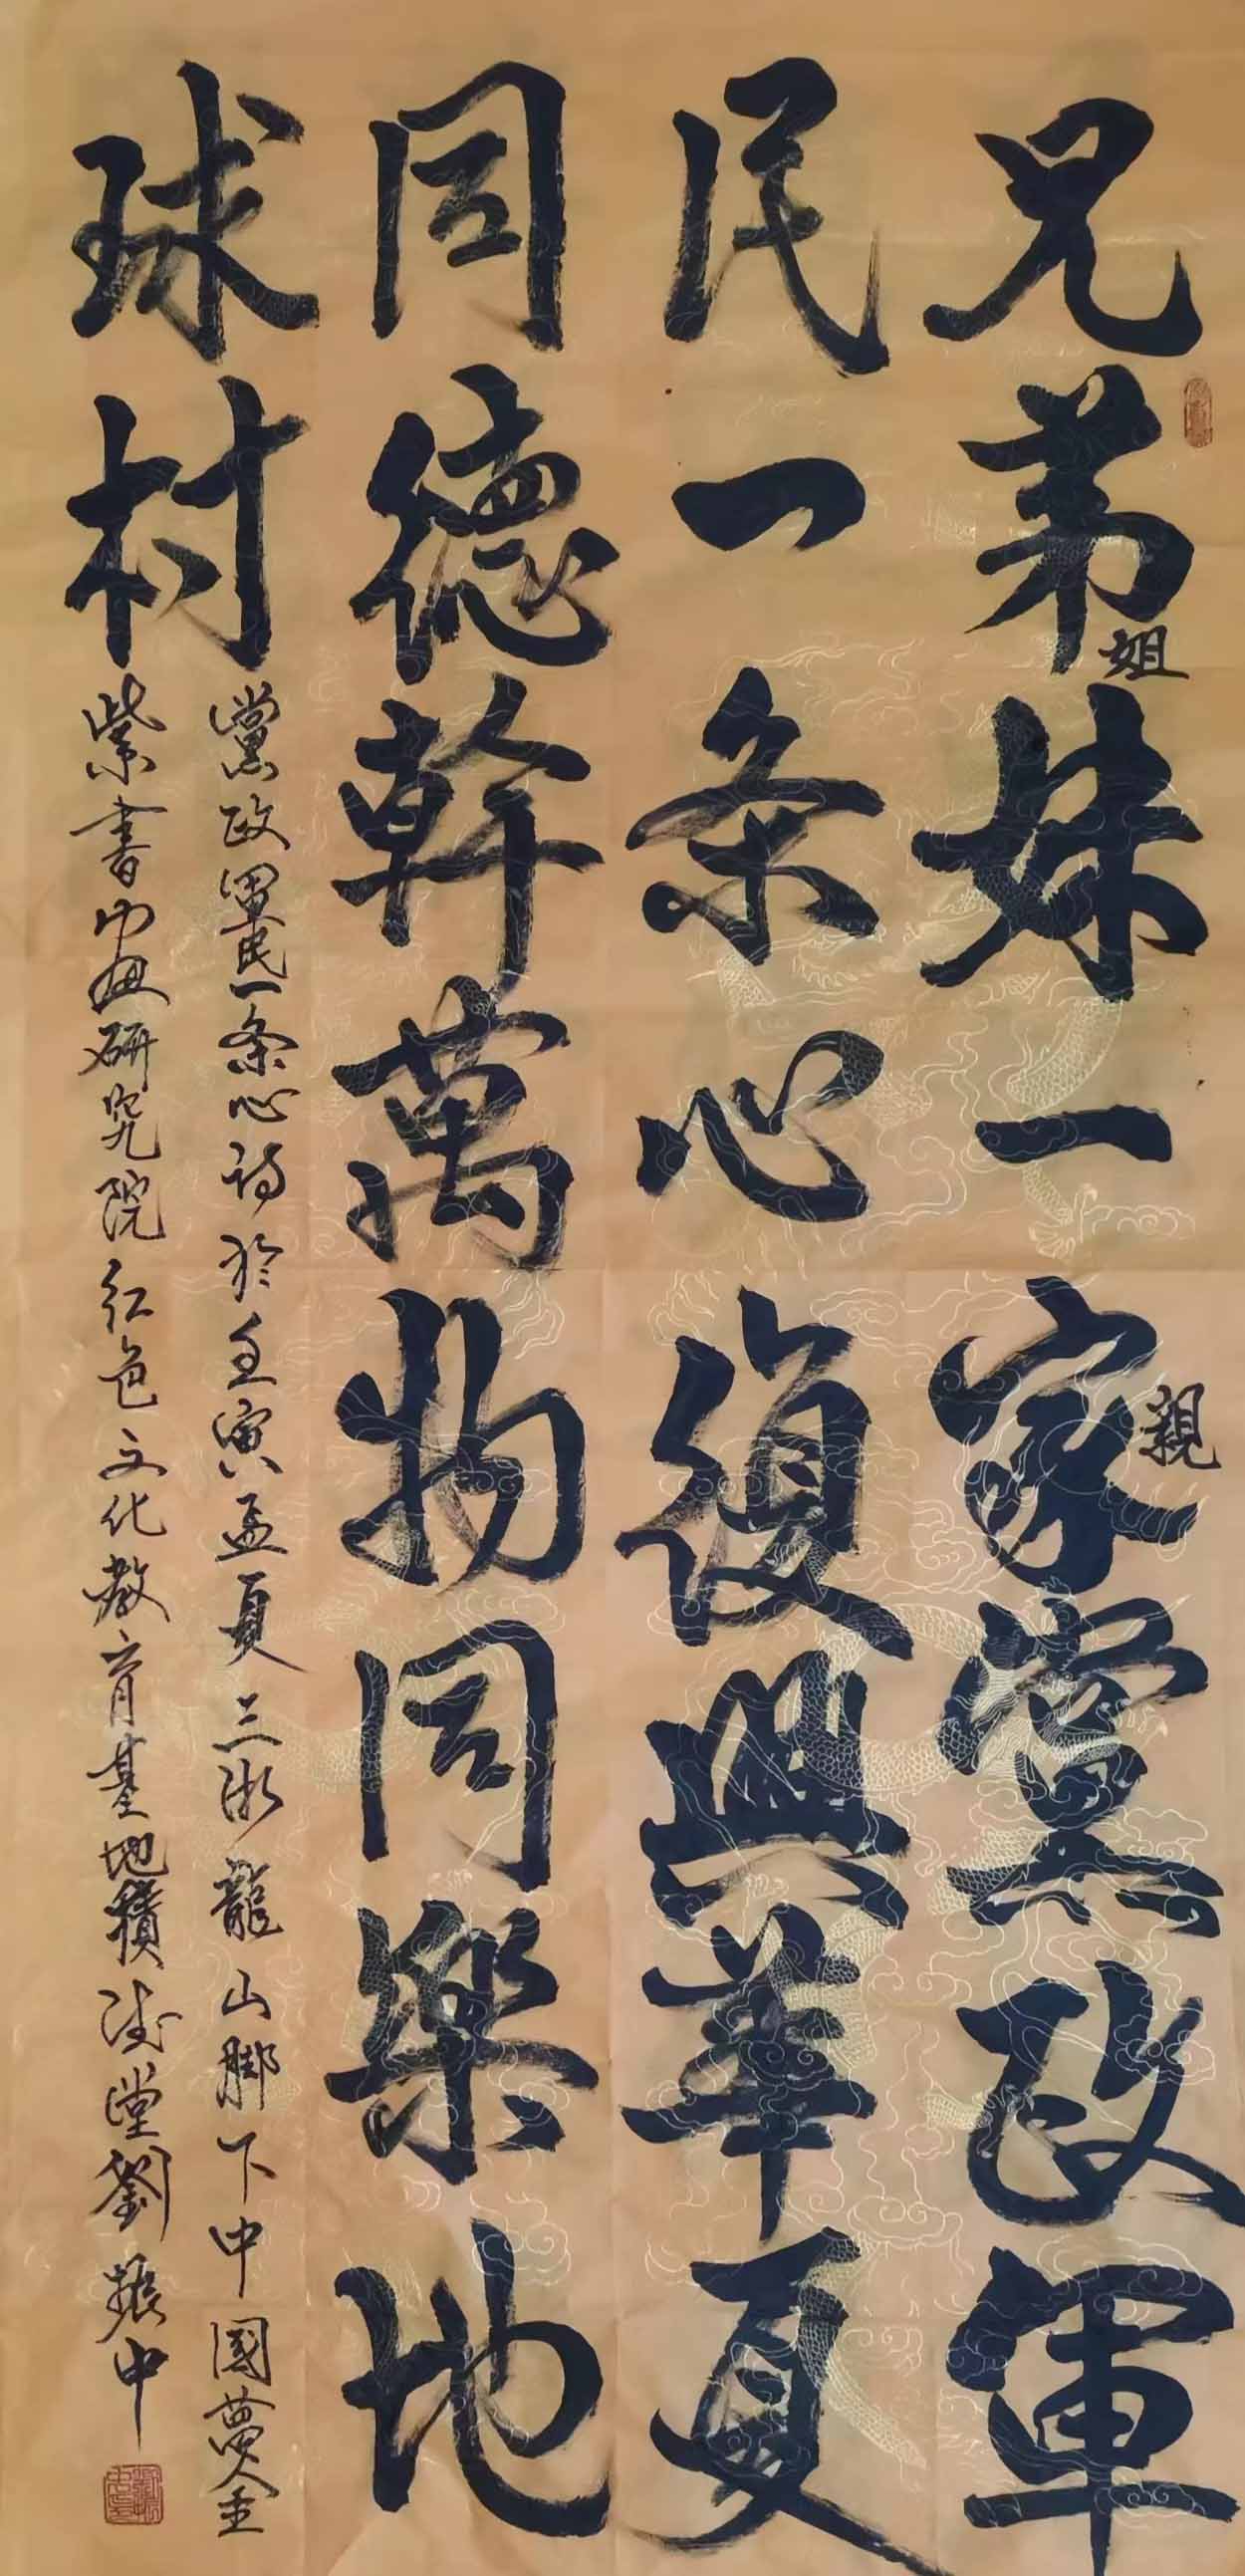 兄弟姐妹一家親黨政軍
民一条心復興華夏
同德幹萬物同樂地
球村
黨政軍民一条心詩於壬寅孟夏三湘龍山脚下中國夢金
紫書画研究院红色文化教育基地積德堂劉振中